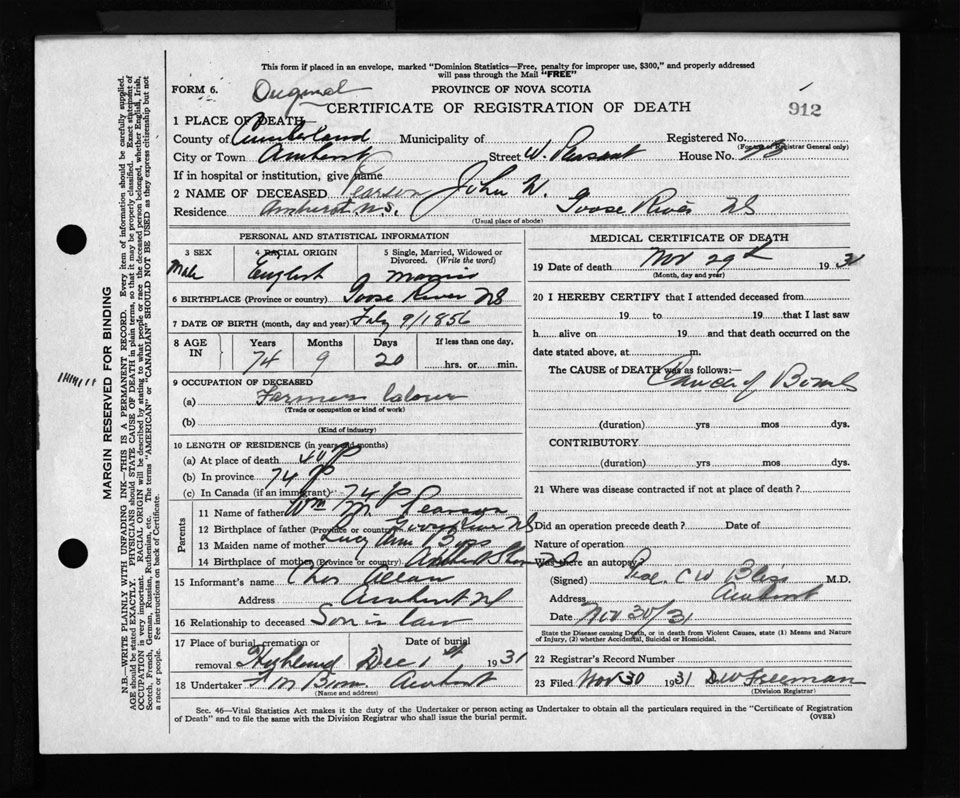 This form if placed in an envelope, marked "Dominion Statistics—Free, penalty for improper use, $300," and properly addressed
will pass through the Mail "FREE"
FORM 6. Original PROVINCE OF NOVA SCOTIA
CERTIFICATE OF REGISTRATION OF DEATH 912
1 PLACE OF DEATH—
County of Cumberland Municipality of Registered No.
(For use of Registrar General only)
City or Town Amherst Street W. House No.
If in hospital or institution, give name
2 NAME OF DECEASED Pearson John W.
Residence Amherst N.S. Goose River NS
(Usual place of abode)
PERSONAL AND STATISTICAL INFORMATION
3 SEX 4 RACIAL ORIGIN 5 Single, Married, Widowed or Divorced. (Write the word)
Male English
6 BIRTHPLACE (Province or country) Goose River NS
7 DATE OF BIRTH (month, day and year) Feby 9/1856
8 AGE IN Years Months Days If less than one day,
74 9 20 hrs. or min.
9 OCCUPATION OF DECEASED
(a) Farmer laborer
(Trade or occupation or kind of work)
(b)
(Kind of industry)
10 LENGTH OF RESIDENCE (in years and months)
(a) At place of death 40
(b) In province 74
(c) In Canada (if an immigrant) 74
Parents
11 Name of father Wm M. Pearson
12 Birthplace of father (Province or country) Goose River NS
13 Maiden name of mother Lucy Ann
14 Birthplace of mother (Province or country) Amherst
15 Informant's name Chas Allan
Address Amherst NS
16 Relationship to deceased Son in law
17 Place of burial, cremation or removal Date of burial
Highland Dec 1st 1931
18 Undertaker Amherst
(Name and address)
MEDICAL CERTIFICATE OF DEATH
19 Date of death Nov 29th 193
(Month, day and year)
20 I HEREBY CERTIFY that I attended deceased from
19 to 19 that I last saw
h alive on 19 and that death occurred on
date stated above, at m.
The CAUSE of DEATH was as follows:—
Cancer of Bowel
(duration) yrs mos dys.
CONTRIBUTORY
(duration) yrs mos dys.
21 Where was disease contracted if not at place of death?
Did an operation precede death? Date of
Nature of operation
Was there an autopsy?
(Signed) C W Bliss M.D.
Address Amherst
Date Nov 30/31
State the Disease causing Death, or in death from Violent Causes, state (1) Means and Nature
of Injury, (2) whether Accidental, Suicidal or Homicidal.
22 Registrar's Record Number
23 Filed Nov 30 1931 D W Freeman
(Division Registrar)
Sec. 46—Vital Statistics Act makes it the duty of the Undertaker or person acting as Undertaker to obtain all the particulars required in the "Certificate of Registration
of Death" and to file the same with the Division Registrar who shall issue the burial permit. (OVER)
MARGIN RESERVED FOR BINDING
N.B.—WRITE PLAINLY WITH UNFADING INK—THIS IS A PERMANENT RECORD. Every item of information should be carefully supplied.
AGE should be stated EXACTLY. PHYSICIANS should STATE CAUSE OF DEATH in plain terms, so that it may be properly classified. Exact statement of
OCCUPATION is very important. RACIAL ORIGIN will be described by stating to what people or race the deceased person belonged, whether English, Irish,
Scotch, French, German, Russian, Ruthenian, etc. The terms "AMERICAN" or "CANADIAN" SHOULD NOT BE USED as they express citizenship but not
a race or people. See instructions on back of Certificate.